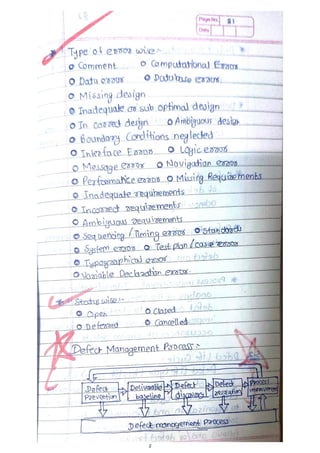 Page No. 81
Date
Type of error wise:-
Comment   Computational Error
Data error   Database error
Missing design
Inadequate or sub optimal design
In correct design   Ambiguous design
Boundary Conditions neglected
Interface Error   Logic error
Message error   Navigation error
Performance error   Missing Requirements
Inadequate requirements
Incorrect requirements
Ambiguous requirements
Sequencing / Timing error   Standards
System error   Test plan / Case error
Typographical error
Variable Declaration error
Status wise:-
Open   Closed
Deferred   Cancelled
Defect Management Process:-
Defect Prevention   Deliverable baseline   Defect discovery   Defect resolution   Process
Defect management Process